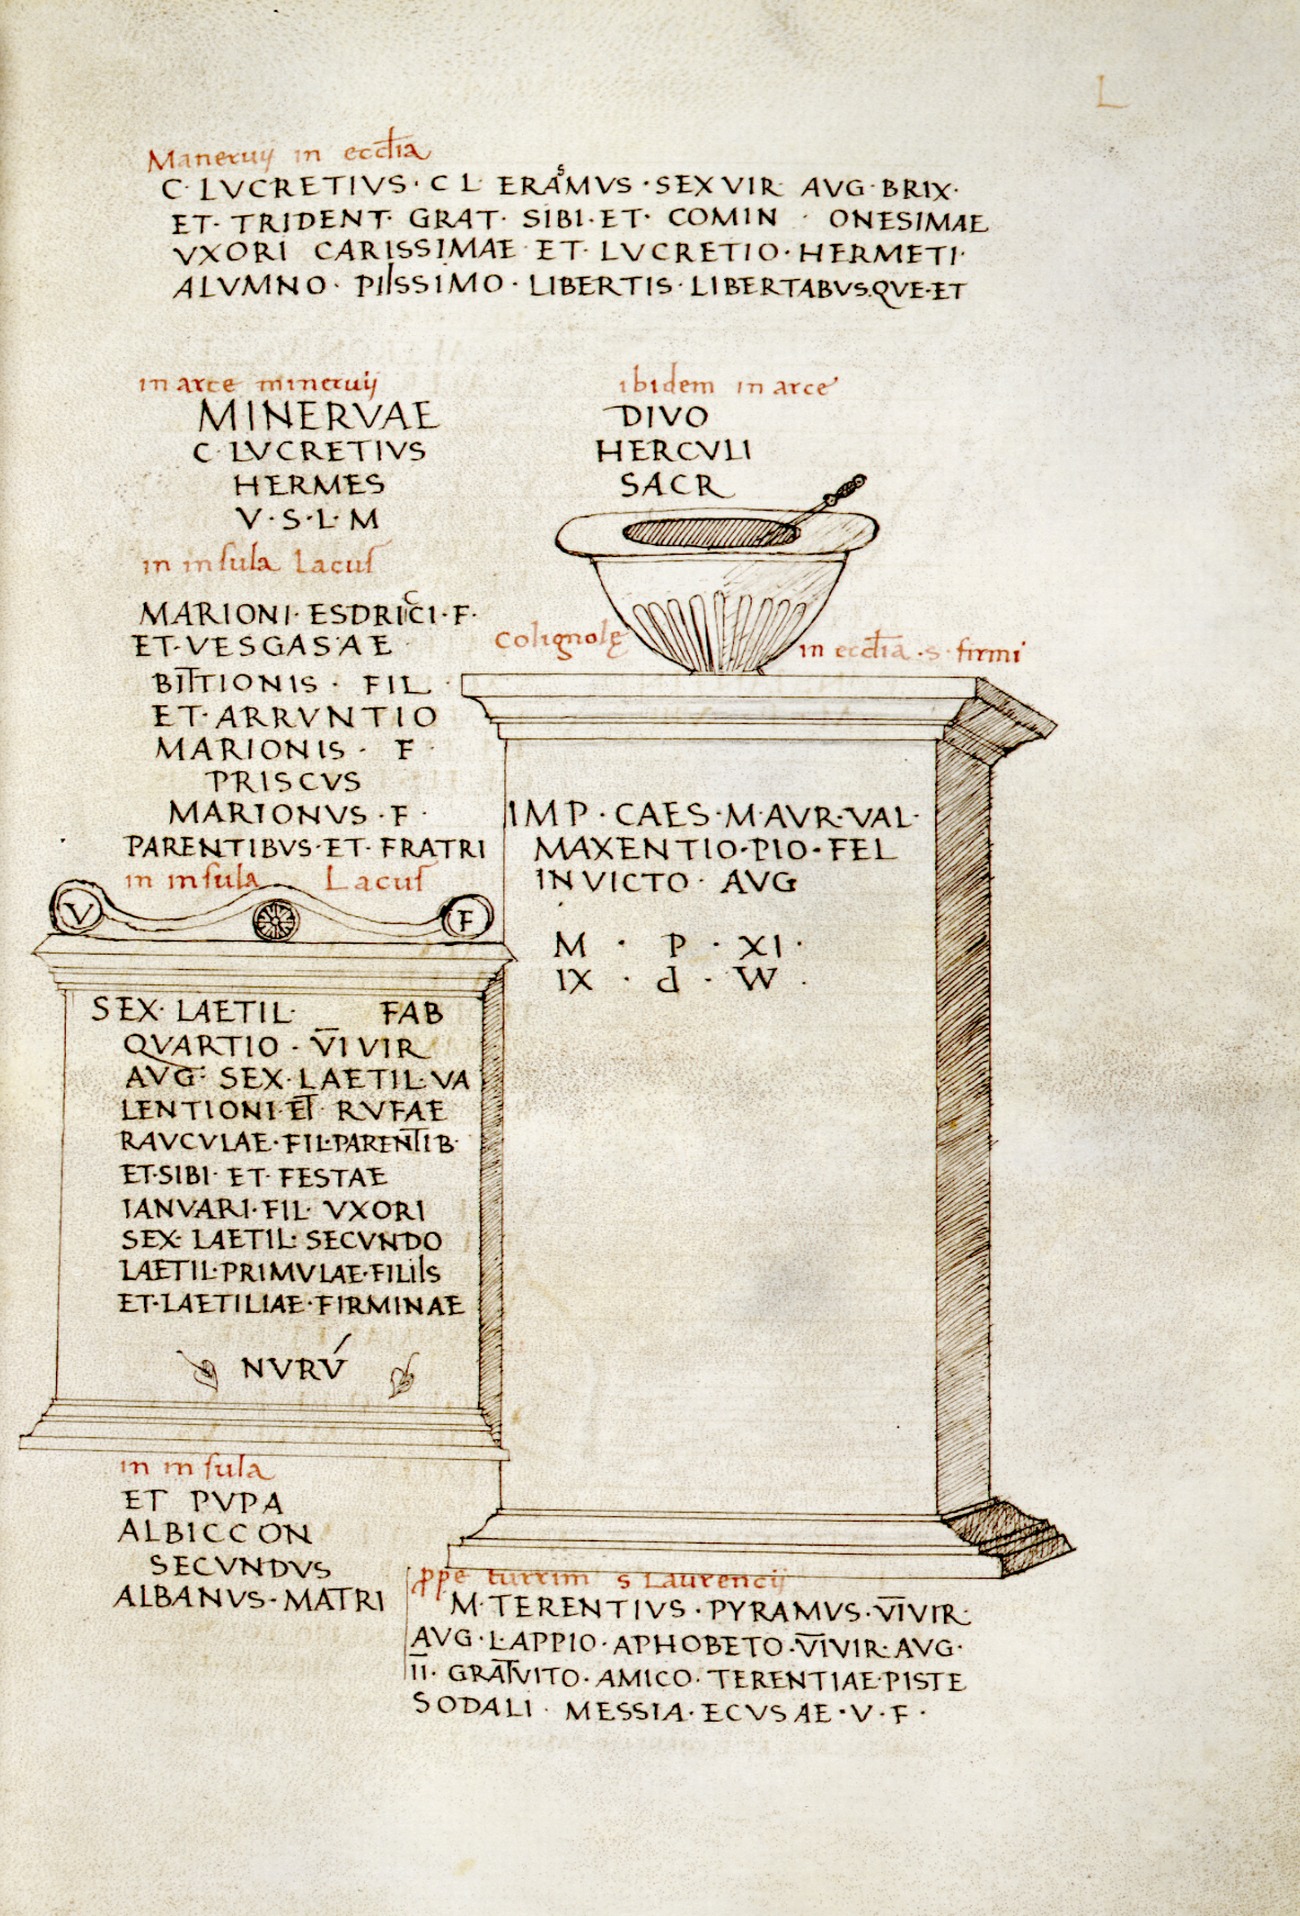 L
Maneruij in eccl̄ia
C· LVCRETIVS· C L ERASMVS ·SEXVIR AVG·BRIX·
ET· TRIDENT· GRAT· SIBI·ET· COMIN · ONESIMAE
VXORI CARISSIMAE ET· LVCRETIO·HERMETI·
ALVMNO· PIISSIMO· LIBERTIS·LIBERTABVS.QVE·ET
in arce mineruij
MINERVAE
C·LVCRETIVS
HERMES
V·S·L·M
ibidem in arce
DIVO
HERCVLI
SACR
in insula Lacus
MARIONI·ESDRICCI·F·
ET·VESGASAE
BITTIONIS · FIL
ET·ARRVNTIO
MARIONIS · F·
PRISCVS
MARIONVS·F·
PARENTIBVS·ET·FRATRI
Colignolę in eccl̄ia ·s· firmi
IMP·CAES·M·AVR·VAL·
MAXENTIO·PIO·FEL
INVICTO· AVG
M · P · XI·
IX · d · W ·
in insula Lacus
V F
SEX· LAETIL· FAB
QVARTIO · V̅I̅VIR
AVG· SEX·LAETIL·VA
LENTIONI·ET RVFAE
RAVCVLAE·FIL·PARENTIB·
ET·SIBI· ET· FESTAE
IANVARI·FIL· VXORI
SEX· LAETIL· SECVNDO
LAETIL·PRIMVLAE·FILIIS
ET·LAETILIAE·FIRMINAE
NVRV́
in insula
ET PVPA
ALBICCON
SECVNDVS
ALBANVS·MATRI
ꝓpe turrim s Laurencij
M·TERENTIVS·PYRAMVS·V̅I̅VIR·
AVG·L·APPIO·APHOBETO·V̅I̅VIR·AVG·
I̅I̅· GRATVITO·AMICO·TERENTIAE·PISTE
SODALI· MESSIA·ECVSAE·V·F·